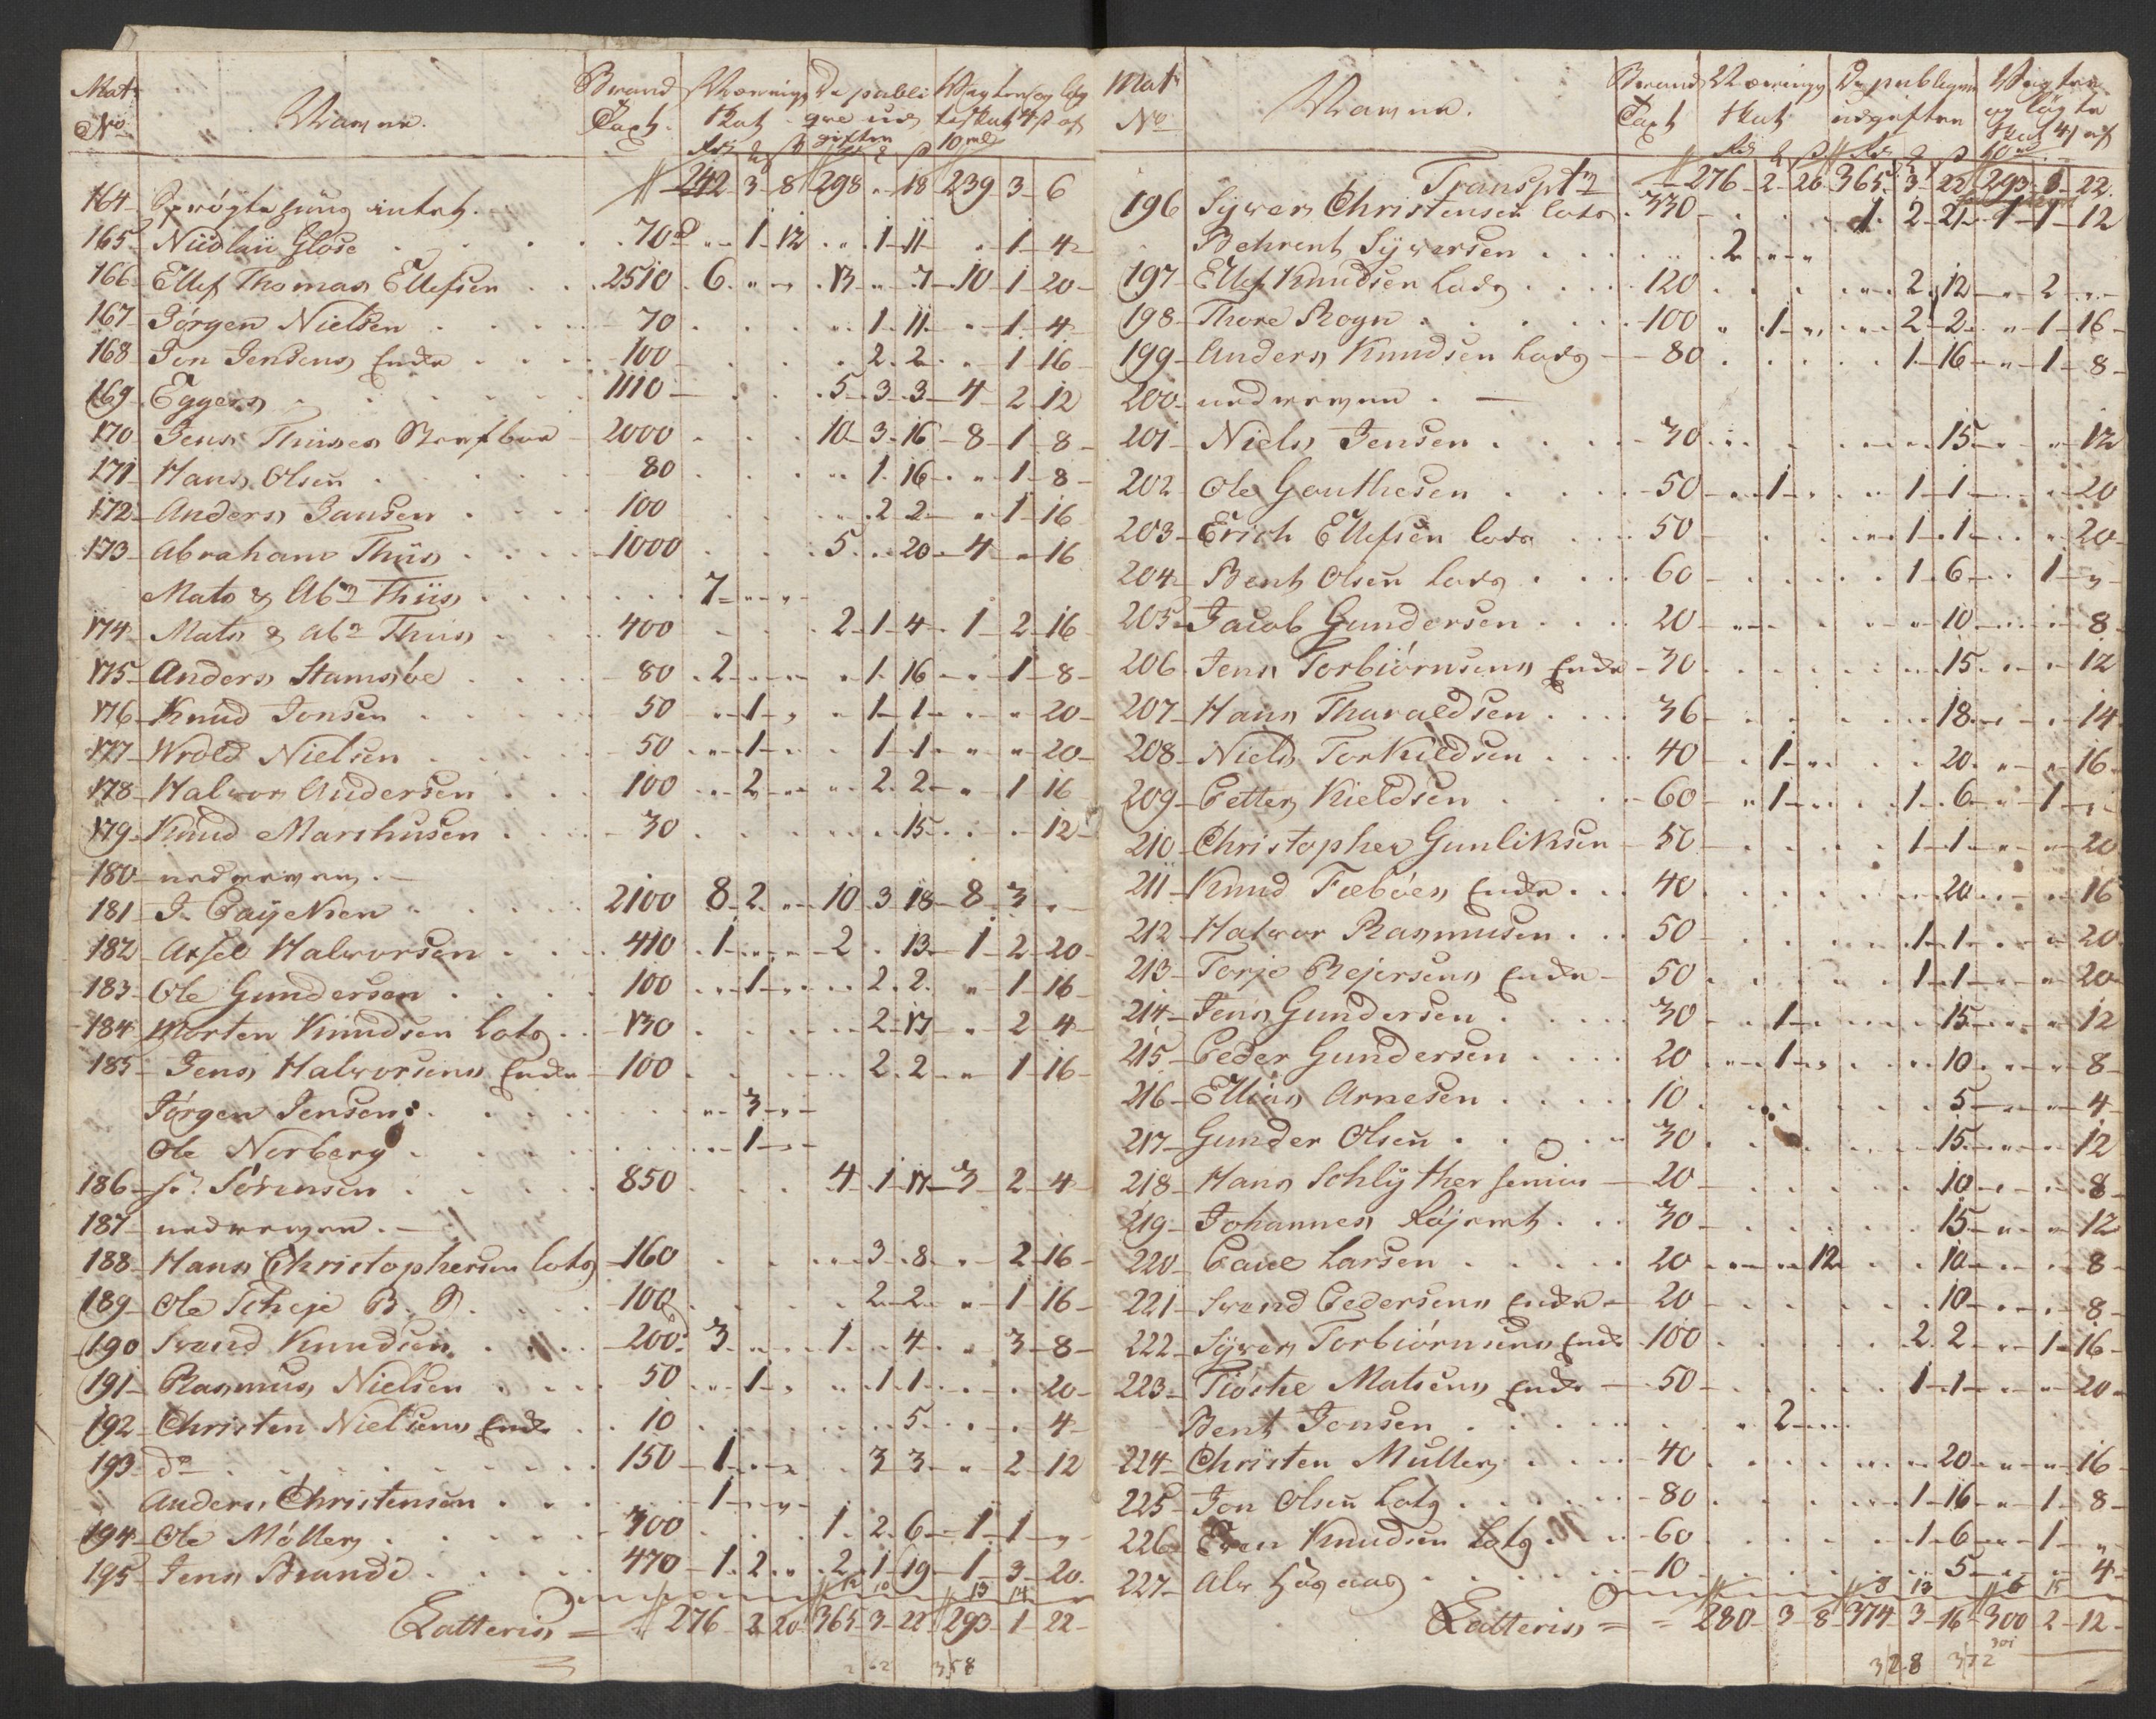 Mat No Navne. Brand Taxt. Nærings Skat De publique udgifter Vægter og løgteskat 4 ß af 10 rd
242 3 8 298 " 18 239 3 6
164 Sprøytehuus intet.
165 Nicolai Glose 70 " 1 12 " 1 11 " 1 4
166 Ellef Thomas Ellefsen 2510 6 " " 13 " 7 10 1 20
167 Jørgen Nielsen 70 " 1 11 " 1 4
168 Jon Jensens Enke 100 2 2 " 1 16
169 Eggers 1110 5 3 3 4 2 12
170 Jens Thuesen 2000 10 3 16 8 1 8
171 Hans Olsen 80 " 1 16 " 1 8
172 Anders Jansen 100 " 2 2 " 1 16
173 Abraham Thüs 1000 5 " 20 4 " 16
Mats & Abm Thiis 7 " "
174 Mats & Abm Thiis 400 2 1 4 1 2 16
175 Anders Stamsøe 80 2 " " " 1 16 " 1 8
176 Knud Jonsen 50 " 1 " " 1 1 " " 20
177 Wrold Nielsen 50 " 1 " " 1 1 " " 20
178 Halvor Andersen 100 " 2 " " 2 2 " 1 16
179 Knud Marchusen 30 " " 15 " " 12
180 nedreven.
181 J. Paÿeksen 2100 8 2 " 10 3 18 8 3 "
182 Axsel Halvorsen 410 1 " " 2 " 13 1 2 20
183 Ole Gundersen 100 " 1 " " 2 2 " 1 16
184 Morten Knudsen Lots 130 2 17 " 2 4
185 Jens Halvorsens Enke 100 2 2 " 1 16
Jørgen Jensen " 3 "
Ole Norberg " 1 "
186 Sr. Sørensen 850 4 1 17 3 2 4
187 nedreven.
188 Hans Christophersen Lots 160 " 3 8 " 2 16
189 Ole Scheje B. S. 100 2 2 " 1 16
190 Svend Knudsen 200 3 " " 1 " 4 " 3 8
191 Rasmus Nielsen 50 " 1 " " 1 1 " " 20
192 Christen Nielsens Enke 10 " " 5 " " 4
193 do 150 1 " " " 3 3 " 2 12
Anders Christensen 1 " "
194 Ole Møller 300 1 2 6 1 1 "
195 Jens Brandt 470 1 2 " 2 1 19 1 3 20
Latteris = 276 2 20 365 3 22 293 1 22
Mat No Navne. Brand Taxt Nærings Skat De publique udgifter Vægter og løgte Skat 4 ß af 10 rd
Transpt 276 2 20 365 3 22 293 1 22
196 Syver Christensen Lots 330 1 2 21 1 1 12
Behrent Syversen 2 " "
197 Ellef Knudsen Lods 120 " 2 12 " 2 "
198 Thore Rogn 100 " 1 " " 2 2 " 1 16
199 Anders Knudsen Lods 80 1 16 " 1 8
200 nedreven
201 Niels Jensen 30 " " 15 " " 12
202 Ole Gauthesen 50 " 1 " " 1 1 " " 20
203 Erich Ellefsen Lots 50 " 1 1 " " 20
204 Bent Olsen Lods 60 1 6 " 1 "
205 Jacob Gundersen 20 " " 10 " " 8
206 Jens Torbiørnsens Enke 30 " " 15 " " 12
207 Hans Tharaldsen 36 " " 18 " " 14
208 Niels Torkildsen 40 " 1 " " " 20 " " 16
209 Petter Kieldsen 60 " 1 " " 1 6 " 1 "
210 Christopher Gunliksen 50 1 1 " " 20
211 Knud Fæbøes Enke 40 " " 20 " " 16
212 Halvor Rasmusen 50 " 1 1 " " 20
213 Torje Rejersens Enke 50 1 1 " " 20
214 Jens Gundersen 30 " 1 " " " 15 " " 12
215 Peder Gundersen 20 " 1 " " " 10 " " 8
216 Ellias Arnesen 10 5 " " 4
217 Gunder Olsen 30 15 " " 12
218 Hans Schlyther senior 20 10 " " 8
219 Johannes 30 15 " " 12
220 Paul Larsen 20 " " 12 " " 10 " " 8
221 Svend Pedersens Enke 20 10 " " 8
222 Syver Torbiørnsens Enke 100 2 2 " 1 16
223 Tiøstel Matsens Enke 50 1 1 " " 20
Bent Jensen " 2 "
224 Christen Muller 40 " " 20 " " 16
225 Jon Olsen Lots 80 " 1 16 " 1 8
226 Even Knudsen Lots 60 1 6 " 1 "
227 Alv 10 5 " " 4
Latteris = 280 3 8 374 3 16 300 2 12
301
328 372